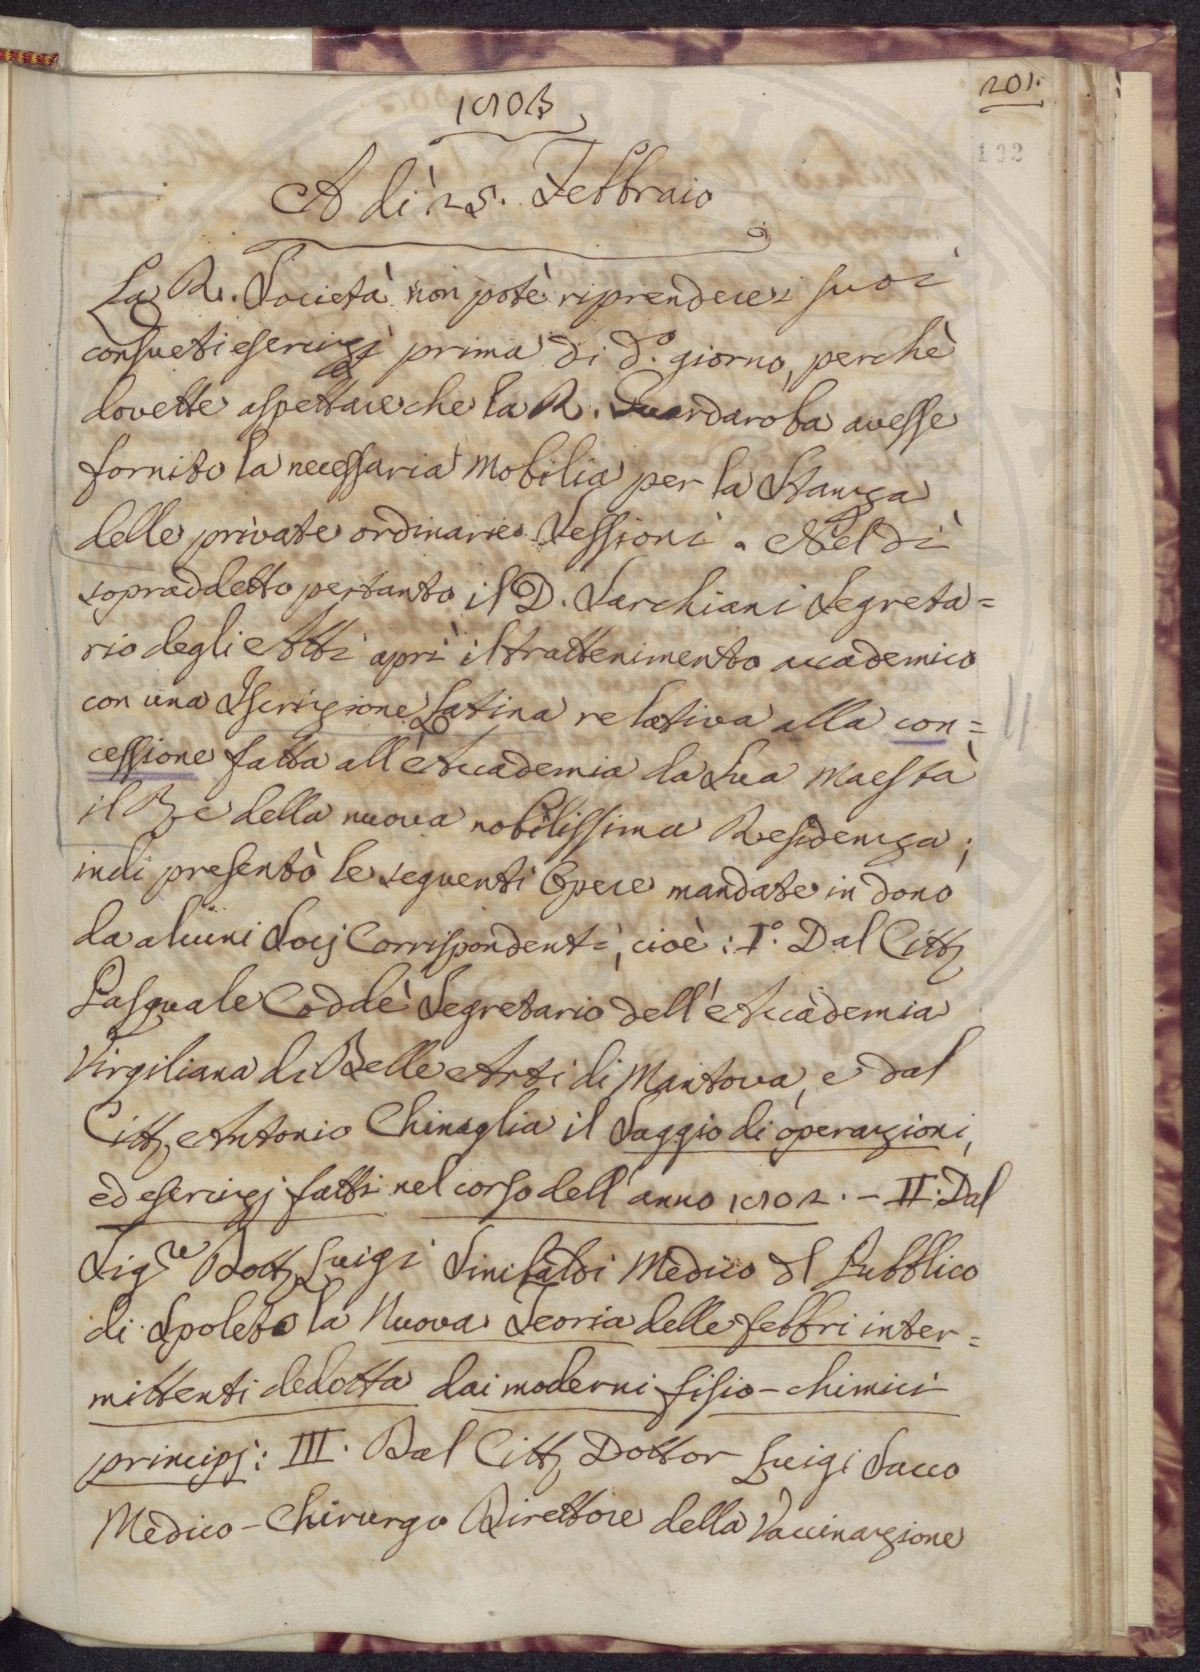 201.
1803
102
A dì 25. Febbraio
La R. Società non potè riprendere i suoi
consueti esercizj prima di d.º giorno, perchè
dovette aspettare che la R. Guardaroba avesse
fornito la necessaria Mobilia per la Stanza
delle private ordinarie Sessioni. Nel dì
sopraddetto pertanto il D. Sarchiani Segreta=
rio degli Atti aprì il trattenimento accademico
con una Iscrizione Latina relativa alla con=
cessione fatta all'Accademia da Sua Maestà
il Re della nuova nobilissima Residenza;
indi presentò le seguenti Opere mandate in dono
da alcuni Socj Corrispondenti, cioè: I.º Dal Citt.
Pasquale Coddè Segretario dell'Accademia
Virgiliana di Belle Arti di Mantova, e dal
Citt. Antonio Chinaglia il Saggio di operazioni,
ed esercizj fatti nel corso dell'anno 1802. – II. Dal
Sig.re Dott. Luigi Sinibaldi Medico del Pubblico
di Spoleto la Nuova Teoria delle febbri inter=
mittenti dedotta dai moderni fisio-chimici
principj: III. Dal Citt. Dottor Luigi Sacco
Medico-Chirurgo Direttore della Vaccinazione